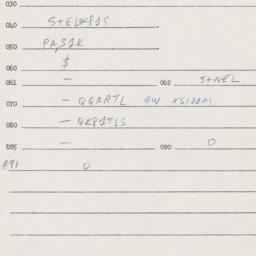 030
040 S+ELK81S
050 PA,S1K
060 $
061 — 062 S+NEL
070 — QGARTL QW XS122M
080 — QK81TLS
085 — 090 O
091 O